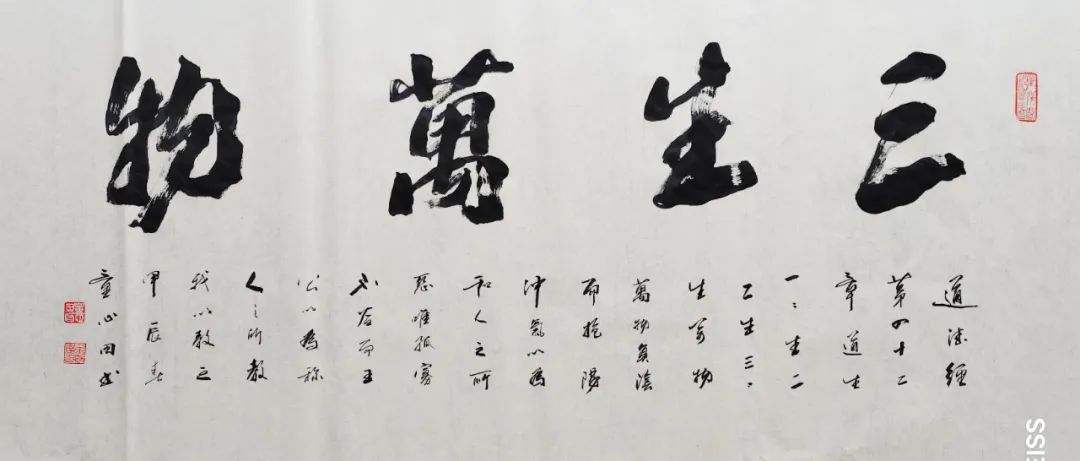 三生萬物
道德經
第四十二
章道生
一〻生二
二生三〻
生萬物
萬物負陰
而抱陽
沖氣以為
和人之所
惡唯孤寡
不谷而王
公以為称
人之所教
我以教之
甲辰春
童心田书
EISS